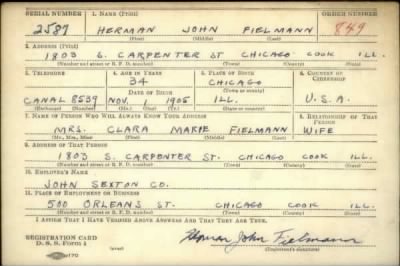 SERIAL NUMBER 1. NAME (Print) ORDER NUMBER
2587 HERMAN JOHN FIELMANN 849
(First) (Middle) (Last)
2. ADDRESS (Print)
1803 S. CARPENTER ST CHICAGO COOK ILL.
(Number and street or R. F. D. number) (Town) (County) (State)
3. TELEPHONE 4. AGE IN YEARS 5. PLACE OF BIRTH 6. COUNTRY OF CITIZENSHIP
34 CHICAGO
DATE OF BIRTH (Town or county)
CANAL 8539 NOV. 1905 ILL. U.S.A.
(Exchange) (Number) (Mo.) (Day) (Yr.) (State or country)
7. NAME OF PERSON WHO WILL ALWAYS KNOW YOUR ADDRESS 8. RELATIONSHIP OF THAT PERSON
MRS. CLARA MARIE FIELMANN WIFE
(Mr., Mrs., Miss) (First) (Middle) (Last)
9. ADDRESS OF THAT PERSON
1803 S. CARPENTER ST. CHICAGO COOK ILL.
(Number and street or R. F. D. number) (Town) (County) (State)
10. EMPLOYER'S NAME
JOHN SEXTON CO.
11. PLACE OF EMPLOYMENT OR BUSINESS
500 ORLEANS ST. CHICAGO COOK ILL.
(Number and street or R. F. D. number) (Town) (County) (State)
I AFFIRM THAT I HAVE VERIFIED ABOVE ANSWERS AND THAT THEY ARE TRUE.
REGISTRATION CARD
D. S. S. Form 1 Herman John Fielmann
(over) (Registrant's signature)